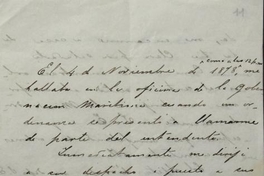 como a las 12 p.m.
El 4 de Noviembre de 1878, me
hallaba en la oficina de la Gober-
nacion Maritima, cuando un or-
denanza se presentó a llamarme
de parte del intendente.
Inmediatamente me diriji
a su despacho, puesto a sus